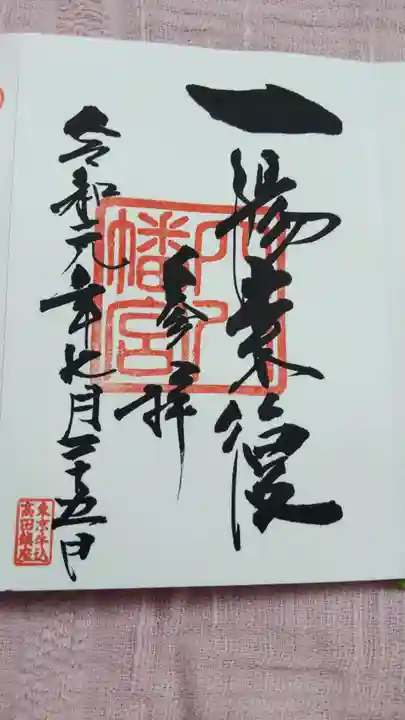 一陽来復
参拝
幡宮
令和元年七月二十五日
東京牛込
高田鎮座